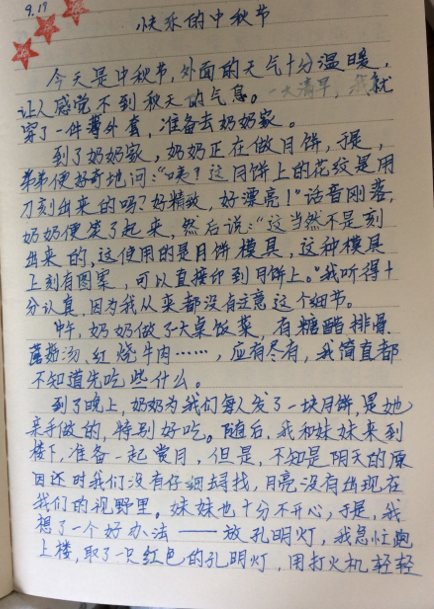 9.17
快乐的中秋节
今天是中秋节,外面的天气十分温暖,
让人感觉不到秋天的气息。一大清早,我就
穿了一件薄外套,准备去奶奶家。
到了奶奶家,奶奶正在做月饼,于是,
弟弟便好奇地问:“咦?这月饼上的花纹是用
刀刻出来的吗?好精致,好漂亮!”话音刚落,
奶奶便笑了起来,然后说:“这当然不是刻
出来的,这使用的是月饼模具,这种模具
上刻有图案,可以直接印到月饼上。”我听得十
分认真,因为我从来都没有注意这个细节。
中午,奶奶做了一大桌饭菜,有糖醋排骨
菌菇汤,红烧牛肉……,应有尽有,我简直都
不知道先吃些什么。
到了晚上,奶奶为我们每人发了一块月饼,是她
亲手做的,特别好吃。随后,我和妹妹来到
楼下,准备一起赏月,但是,不知是阴天的原
因还时我们没有仔细寻找,月亮没有出现在
我们的视野里。妹妹也十分不开心,于是,我
想了一个好办法——放孔明灯,我急忙跑
上楼,取了一只红色的孔明灯,用打火机轻轻